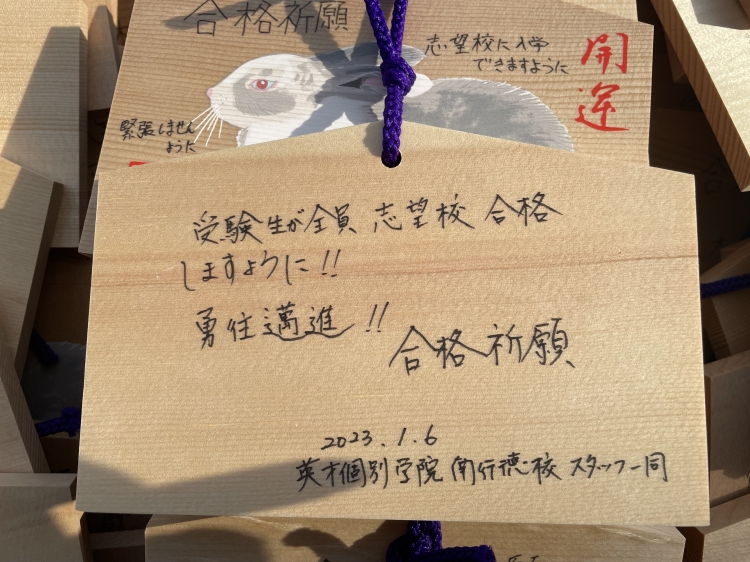 合格祈願
志望校に入学
できますように
開運
緊張しません
ように
受験生が全員 志望校 合格
しますように!!
勇往邁進!!
合格祈願
2023.1.6
英才個別学院 行徳校 スタッフ一同